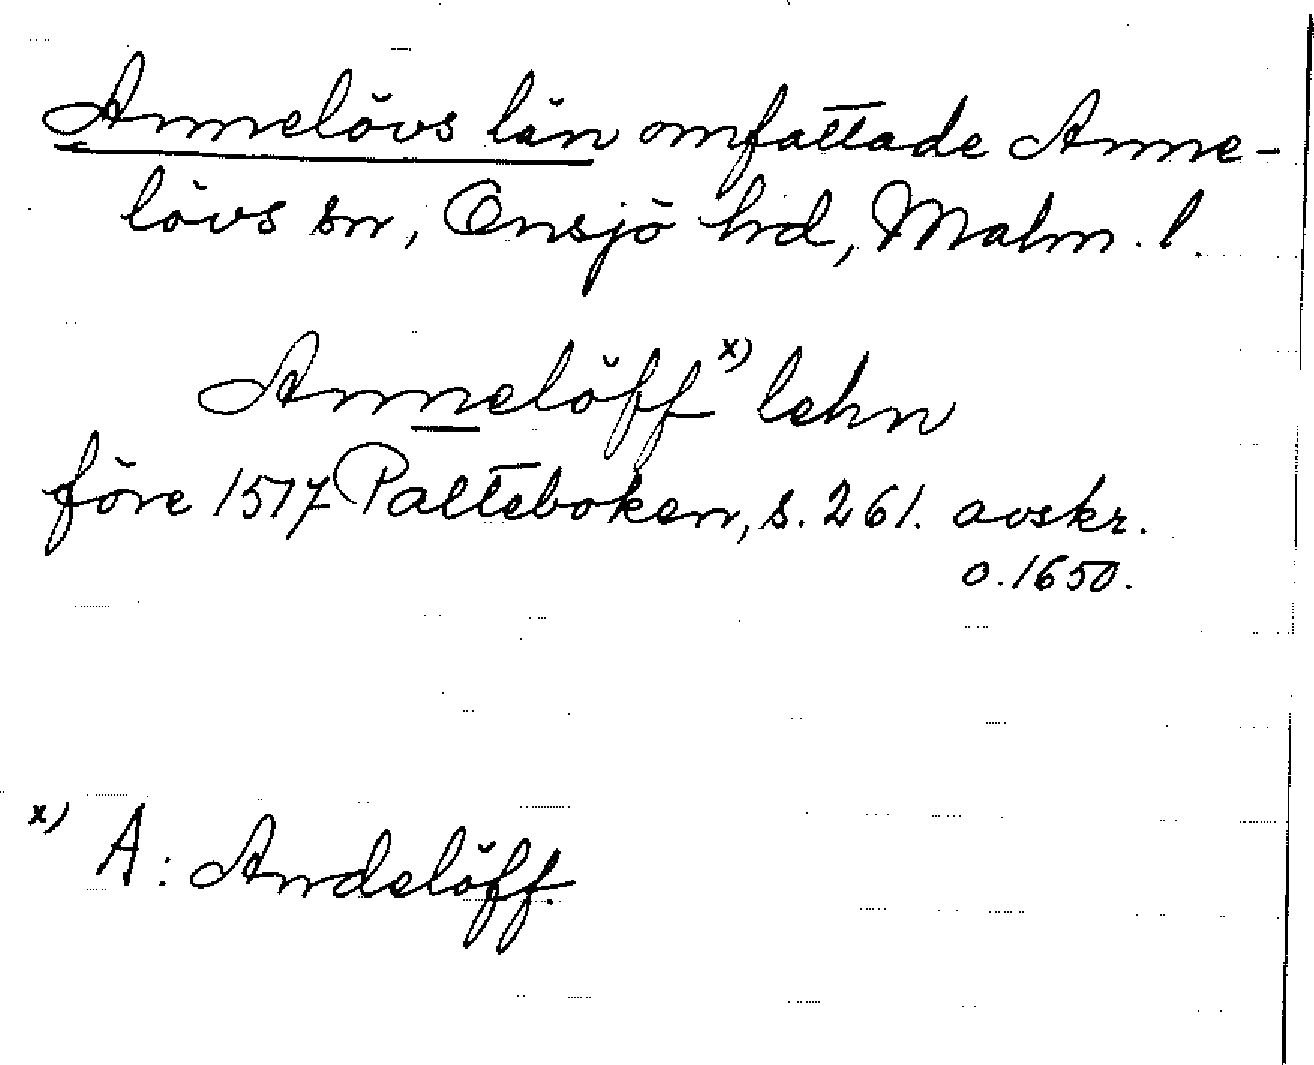 Annelövs län omfattade Anne-
lövs sn, Onsjö hrd, Malm. l.
Annelöff x) lehn
före 1517 Palteboken, s. 261. avskr.
o. 1650.
x) A: Andelöff.